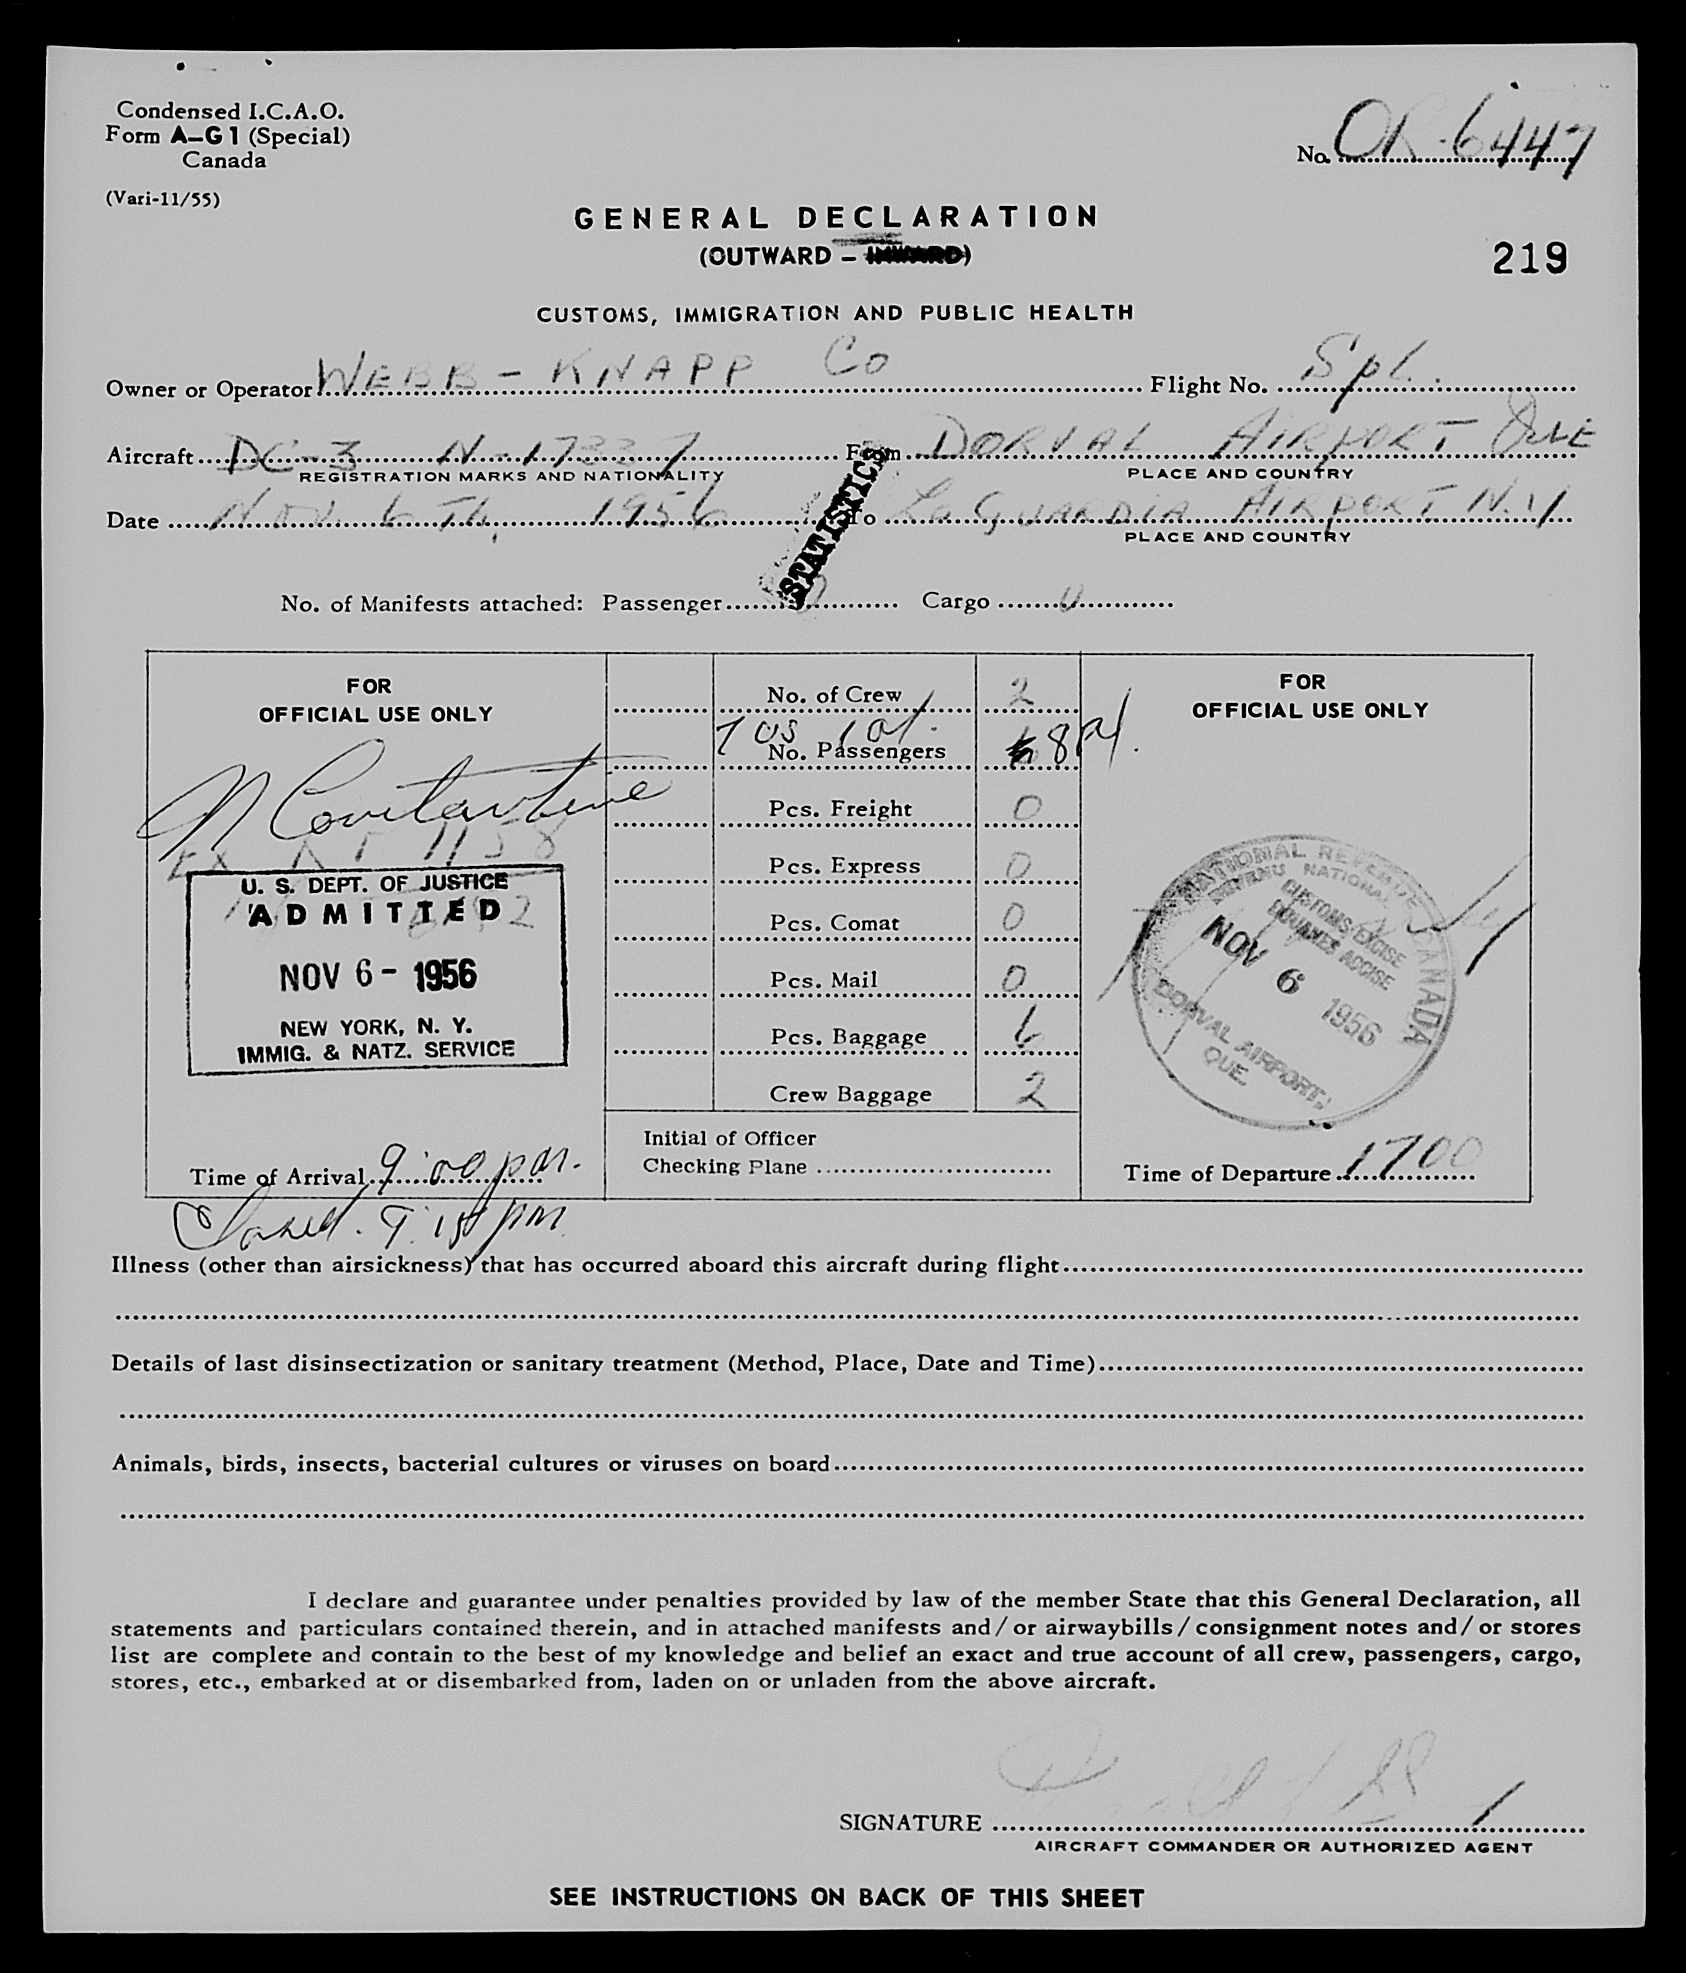 Condensed I.C.A.O.
Form A-G1 (Special)
Canada
No. OR-6447
(Vari-11/55)
GENERAL DECLARATION
(OUTWARD - INWARD)
219
CUSTOMS, IMMIGRATION AND PUBLIC HEALTH
Owner or Operator WEBB-KNAPP Co Flight No. Spl.
Aircraft DC-3 N-17337 From DORVAL AIRPORT QUE
REGISTRATION MARKS AND NATIONALITY PLACE AND COUNTRY
Date Nov. 6 Th. 1956 To La GUARDIA AIRPORT N.Y
PLACE AND COUNTRY
STATISTICS
No. of Manifests attached: Passenger 0 Cargo 0
FOR
OFFICIAL USE ONLY
EX 1158
U. S. DEPT. OF JUSTICE
ADMITTED
NOV 6 - 1956
NEW YORK, N. Y.
IMMIG. & NATZ. SERVICE
Time of Arrival 9:00 pm.
9:15 pm
No. of Crew 2
7 US 1 al.
No. Passengers 8
Pcs. Freight 0
Pcs. Express 0
Pcs. Comat 0
Pcs. Mail 0
Pcs. Baggage 6
Crew Baggage 2
Initial of Officer
Checking Plane
FOR
OFFICIAL USE ONLY
NATIONAL REVENUE CANADA
REVENU NATIONAL
CUSTOMS EXCISE
DOUANES ACCISE
NOV 6 1956
DORVAL AIRPORT,
QUE.
Time of Departure 1700
Illness (other than airsickness) that has occurred aboard this aircraft during flight
Details of last disinsectization or sanitary treatment (Method, Place, Date and Time)
Animals, birds, insects, bacterial cultures or viruses on board
I declare and guarantee under penalties provided by law of the member State that this General Declaration, all
statements and particulars contained therein, and in attached manifests and/or airwaybills/consignment notes and/or stores
list are complete and contain to the best of my knowledge and belief an exact and true account of all crew, passengers, cargo,
stores, etc., embarked at or disembarked from, laden on or unladen from the above aircraft.
SIGNATURE
AIRCRAFT COMMANDER OR AUTHORIZED AGENT
SEE INSTRUCTIONS ON BACK OF THIS SHEET